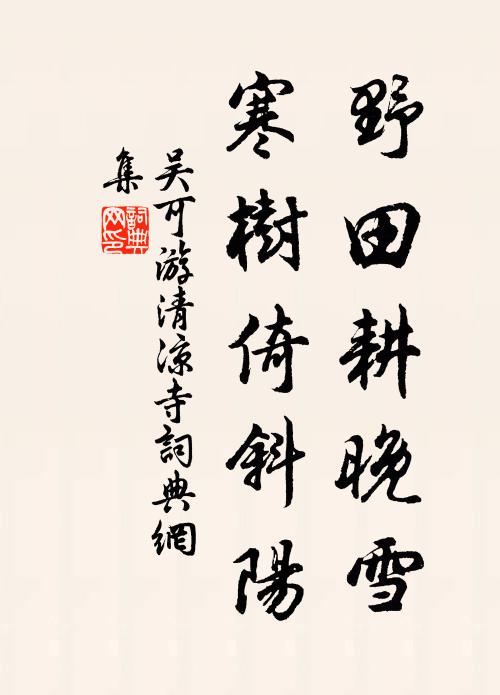 野田耕晚雪
寒樹倚斜陽
吴可游清凉寺詞典網
集
詞典网印